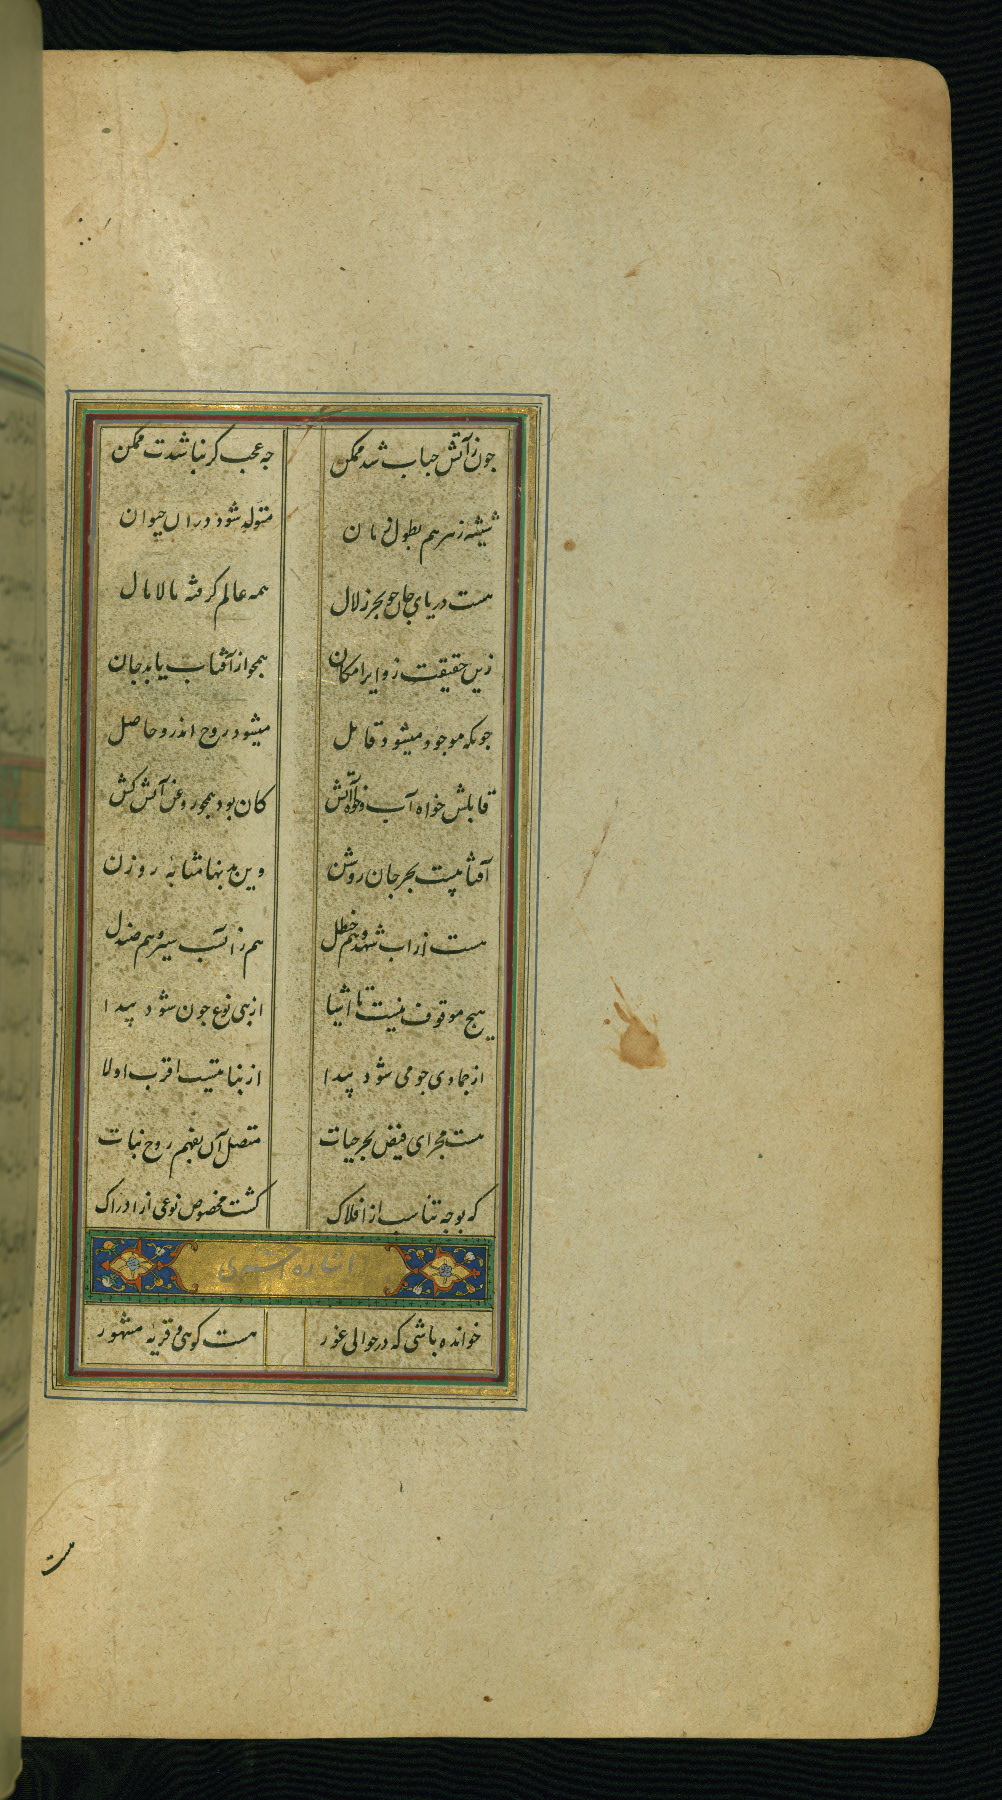 جون زآتش حباب شد ممکن جه عجب کر نباشدت ممکن
شیشه زهرهم بطول زمان متولد شود دران حیوان
هست دریای جان جو بحر زلال همه عالم کرفته مالامال
زین حقیقت زوایرامکان همجو از آفتاب یابد جان
جونکه موجود میشود قابل میشود روح اندرو حاصل
قابلش خواه آب وخواه آتش کان بود همجو روغن آتش کش
آفتابیست بحر جان روشن وین بدنها مثابه روزن
هست ازاب شهد وهم حنظل هم زاتسب سیر وهم صندل
هیج موقوف نیست تا اشیا از بی نوع جون شود پیدا
از جمادی جو می شود پیدا از بنا متیست اقرب اولا
هست مجرای فیض بحر حیات متصل آن بفهم روح نبات
که بوجه تناسب از افلاک کشت مخصوص نوعی از ادراک
اشاره
خوانده باشی که در حوالی غور هست کوهی و قریه مشهور
هست